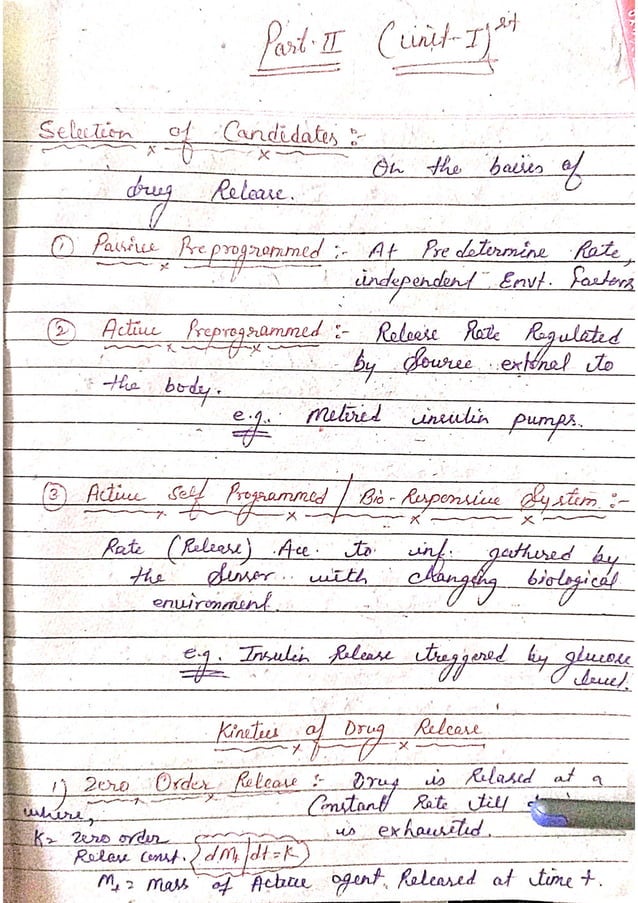 Part-II (Unit-I)st
Selection of Candidates :-
On the baises of
drug Release.
① Passive Preprogrammed :- At Predetermine Rate,
independent Envt. factors
② Active Preprogrammed :- Release Rate Regulated
by Source extenal to
the body.
e.g. Metired insulin pumps.
③ Active Self Programmed / Bio-Responsive System :-
Rate (Release) Acc. to inf. gathered by
the Sensor with changing biological
environment.
e.g. Insulin Release treggered by glucose
level.
Kinetics of Drug Release
1) Zero Order Release :- Drug is Relased at a
where, Constant Rate till
K= zero order is exhausted.
Relase const. dMt/dt=K
Mt = Mass of Active agent Released at time t.